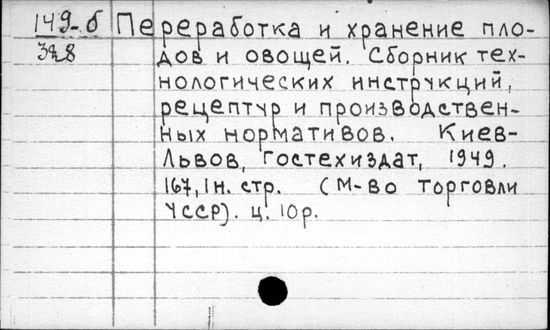 149-б Переработка и хранение пло-
328 дов и овощей. Сборник тех-
нологических инструкций,
рецептур и производствен-
ных нормативов. Киев-
Львов, Гостехиздат, 1949.
167, 1 н. стр. (М-во торговли
УССР). ц. 10 р.